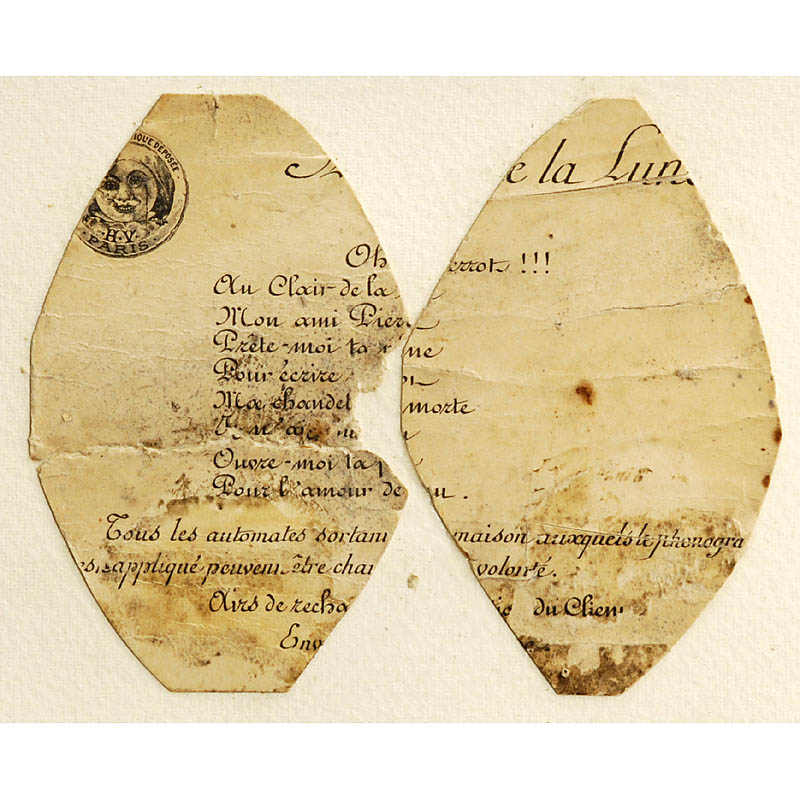 QUE DÉPOSÉE
H.V.
PARIS
e la Lune
Oh errot !!!
Au Clair de la
Mon ami Pierr
Prête-moi ta me
Pour écrire
Ma chandel morte
Ouvre-moi la p
Pour l'amour de u.
Tous les automates sortan maison auxquels le phonogra
est appliqué peuvent être chan volonté.
Airs de recha du Clien
Env